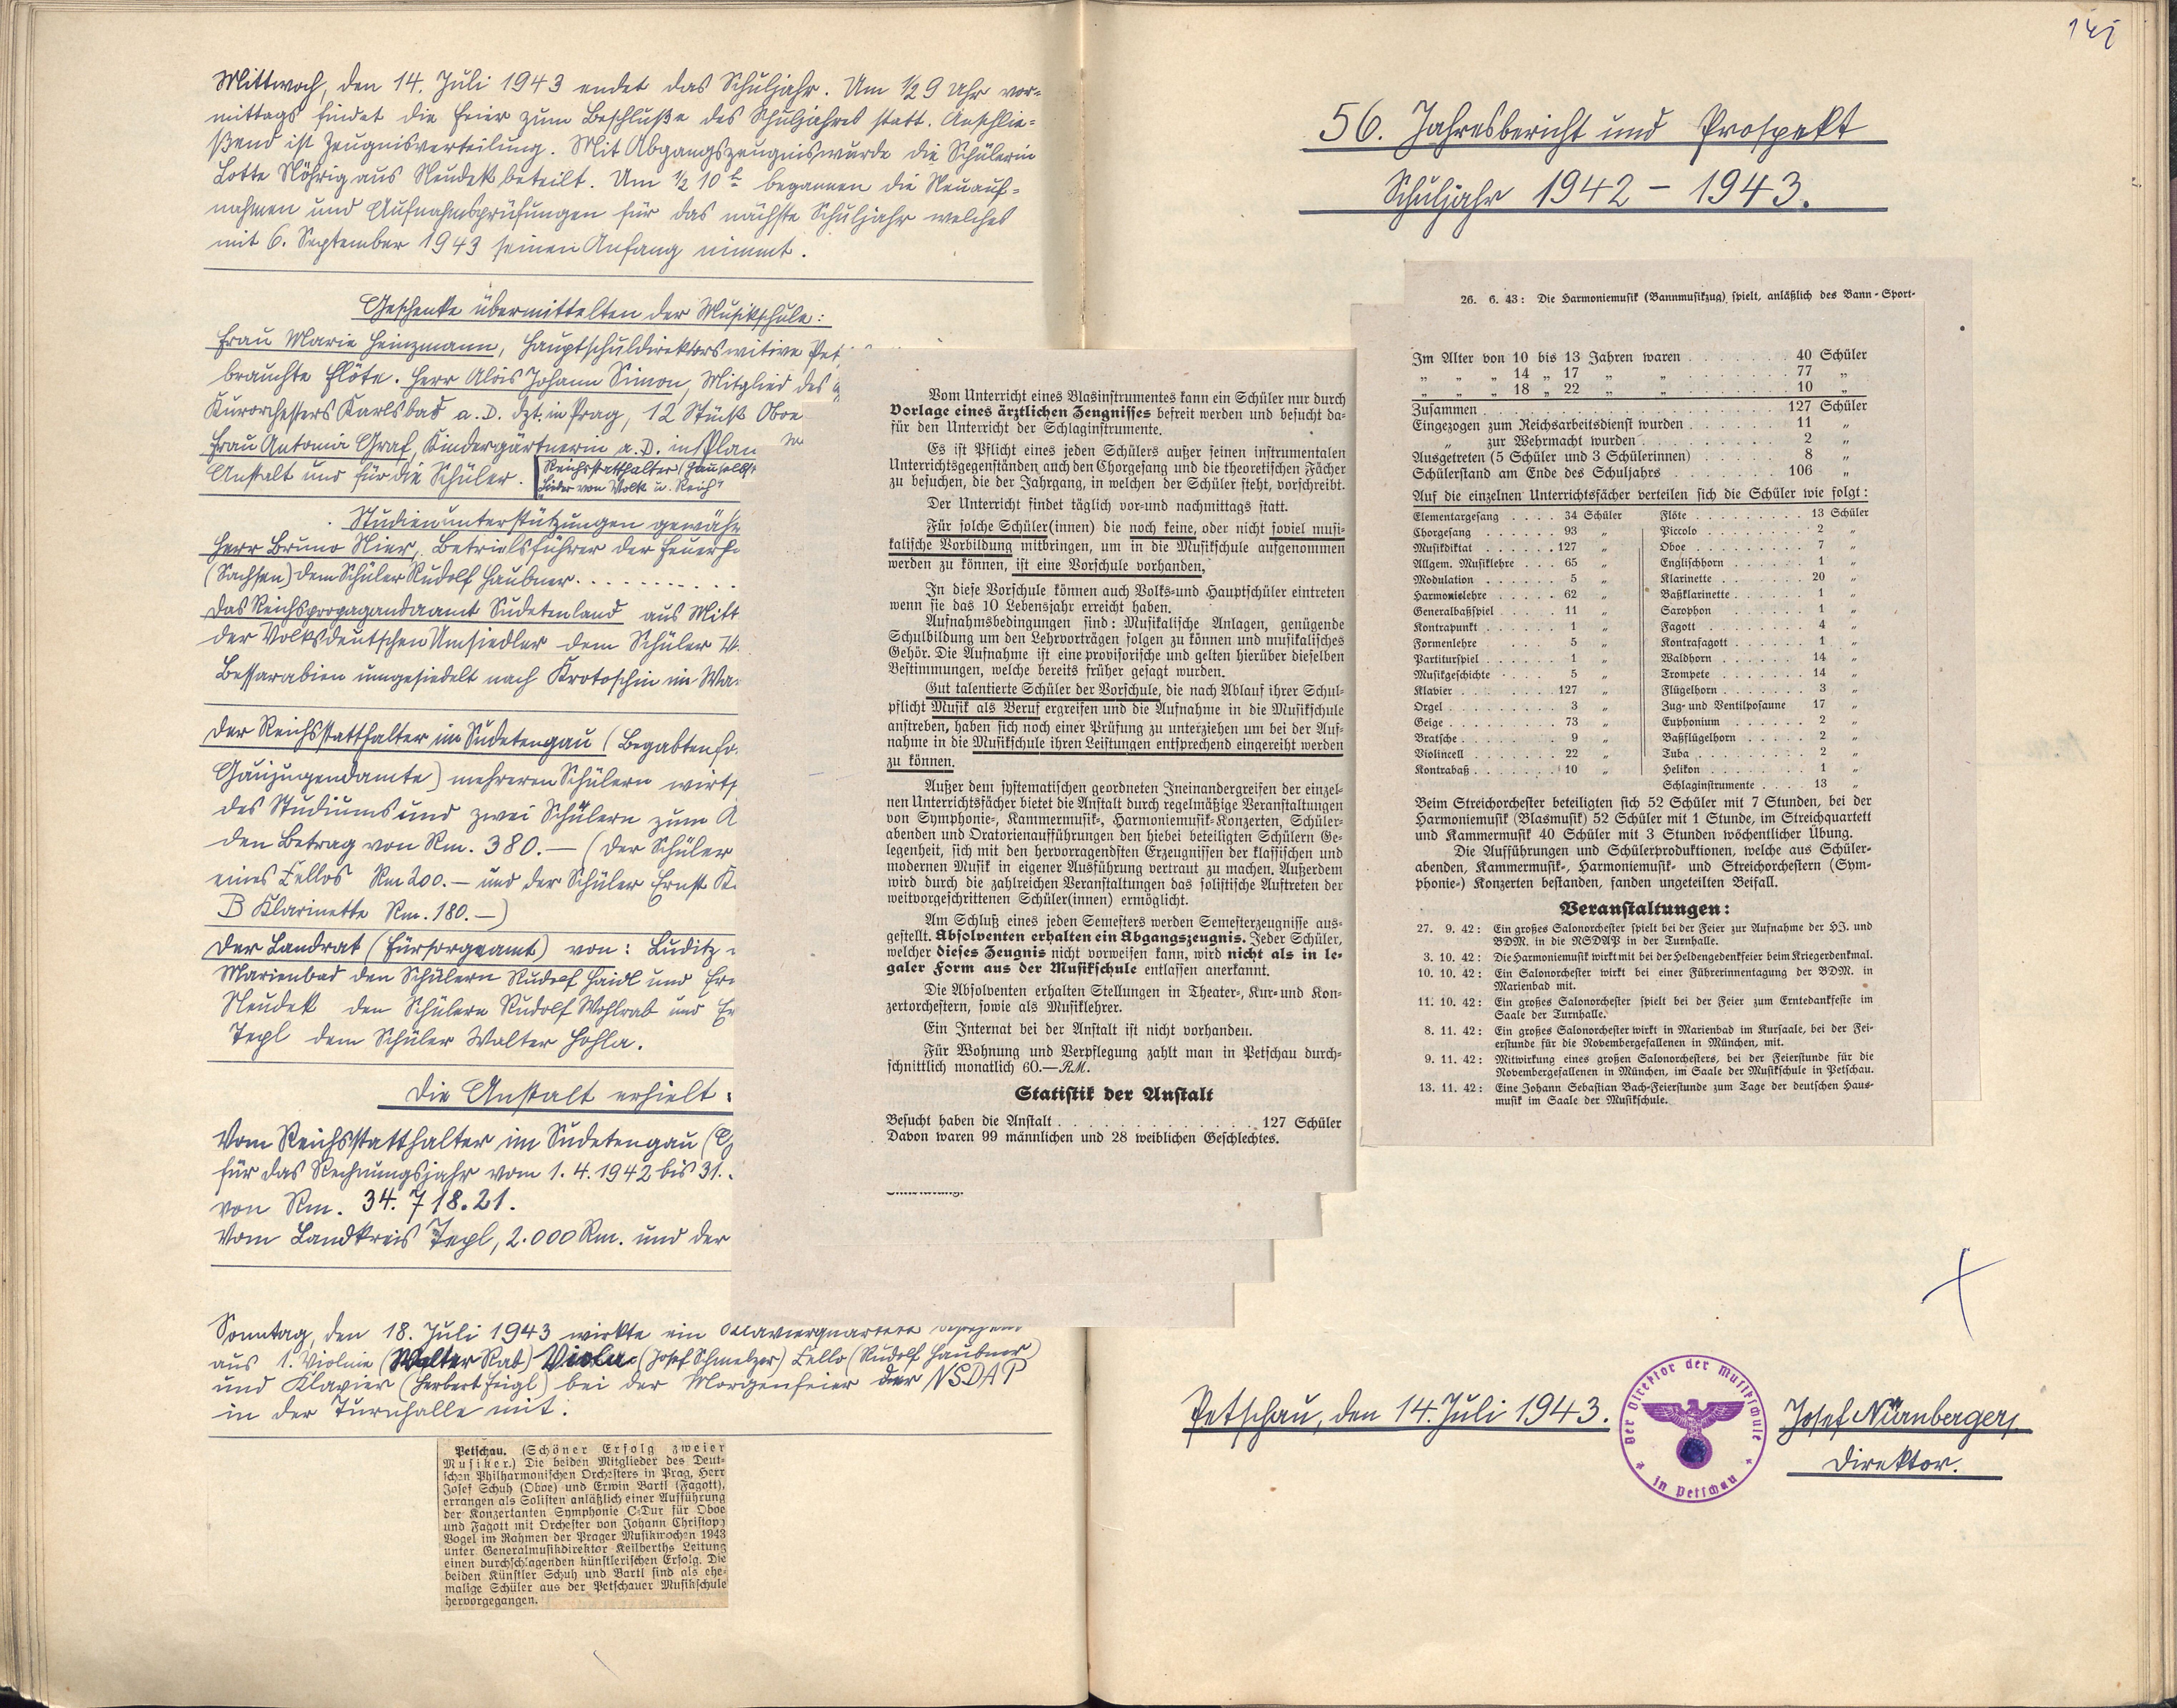 Mittwoch, den 14. Juli 1943 endet das Schuljahr. Um ½ 9 Uhr vor=
mittags findet die Feier zum Beschluße des Schuljahres statt. Anschlie=
ßend ist Zeugnisverteilung. Mit Abgangszeugnis wurde die Schülerin
Lotte Röhrig aus Neudek beteilt. Um ½ 10 h begannen die Neuauf=
nahmen und Aufnahmsprüfungen für das nächste Schuljahr welches
mit 6. September 1943 seinen Anfang nimmt.
Geschenke übermittelten der Musikschule:
Frau Marie Heinzmann, Hauptschuldirektorswitwe Pet
brauchte Flöte. Herr Alois Johann Simon, Mitglied des
Kurorchesters Karlsbad a. D. dzt. in Prag, 12 Stück Oboe
Frau Antonia Graf, Kindergärtnerin a. D. in Plan
Anstalt und für die Schüler. Reichsstatthalter (Gauselbst
"Lieder von Volk u. Reich"
Studienunterstützungen gewähr
Herr Bruno Nier, Betriebsführer der Feuer
(Sachsen) dem Schüler Rudolf Haubner . . . . . . . . . .
Das Reichspropagandaamt Sudetenland aus Mitt
der Volksdeutschen Umsiedler dem Schüler W.
Bessarabien umgesiedelt nach Krotoschin im Wa
Der Reichsstatthalter im Sudetengau (Begabtenfö
Gaujugendamte) mehreren Schülern wirts
des Studiums und zwei Schülern zum A
den Betrag von Rm. 380.— (der Schüler
eines Cellos Rm 200.— und der Schüler Ernst K
B Klarinette Rm. 180.—)
Der Landrat (Fürsorgeamt) von: Luditz
Marienbad den Schülern Rudolf Haidl und
Neudek den Schülern Rudolf Wohlrab und
Tepl dem Schüler Walter Hohla.
Die Anstalt erhielt:
Vom Reichsstatthalter im Sudetengau
für das Rechnungsjahr vom 1. 4. 1942 bis 31.
von Rm. 34.718.21.
Vom Landkreis Tepl, 2.000 Rm. und der
Sonntag, den 18. Juli 1943 wirkte ein Klavierquartett bestehend
aus 1. Violine (Walter Rab) Viola (Josef Schmelzer) Cello (Rudolf Haubner)
und Klavier (Herbert Feigl) bei der Morgenfeier der NSDAP
in der Turnhalle mit.
Petschau. (Schöner Erfolg zweier
Musiker.) Die beiden Mitglieder des Deut-
schen Philharmonischen Orchesters in Prag, Herr
Josef Schuh (Oboe) und Erwin Bartl (Fagott),
errangen als Solisten anläßlich einer Aufführung
der Konzertanten Symphonie C-Dur für Oboe
und Fagott mit Orchester von Johann Christoph
Vogel im Rahmen der Prager Musikwochen 1943
unter Generalmusikdirektor Keilberths Leitung
einen durchschlagenden künstlerischen Erfolg. Die
beiden Künstler Schuh und Bartl sind als ehe-
malige Schüler aus der Petschauer Musikschule
hervorgegangen.
Vom Unterricht eines Blasinstrumentes kann ein Schüler nur durch
Vorlage eines ärztlichen Zeugnisses befreit werden und besucht da-
für den Unterricht der Schlaginstrumente.
Es ist Pflicht eines jeden Schülers außer seinen instrumentalen
Unterrichtsgegenständen auch den Chorgesang und die theoretischen Fächer
zu besuchen, die der Jahrgang, in welchen der Schüler steht, vorschreibt.
Der Unterricht findet täglich vor-und nachmittags statt.
Für solche Schüler(innen) die noch keine, oder nicht soviel musi-
kalische Vorbildung mitbringen, um in die Musikschule aufgenommen
werden zu können, ist eine Vorschule vorhanden,
In diese Vorschule können auch Volks-und Hauptschüler eintreten
wenn sie das 10 Lebensjahr erreicht haben.
Aufnahmsbedingungen sind: Musikalische Anlagen, genügende
Schulbildung um den Lehrvorträgen folgen zu können und musikalisches
Gehör. Die Aufnahme ist eine provisorische und gelten hierüber dieselben
Bestimmungen, welche bereits früher gesagt wurden.
Gut talentierte Schüler der Vorschule, die nach Ablauf ihrer Schul-
pflicht Musik als Beruf ergreifen und die Aufnahme in die Musikschule
anstreben, haben sich noch einer Prüfung zu unterziehen um bei der Auf-
nahme in die Musikschule ihren Leistungen entsprechend eingereiht werden
zu können.
Außer dem systematischen geordneten Ineinandergreifen der einzel-
nen Unterrichtsfächer bietet die Anstalt durch regelmäßige Veranstaltungen
von Symphonie-, Kammermusik-, Harmoniemusik-Konzerten, Schüler-
abenden und Oratorienaufführungen den hiebei beteiligten Schülern Ge-
legenheit, sich mit den hervorragendsten Erzeugnissen der klassischen und
modernen Musik in eigener Ausführung vertraut zu machen. Außerdem
wird durch die zahlreichen Veranstaltungen das solistische Auftreten der
weitvorgeschrittenen Schüler(innen) ermöglicht.
Am Schluß eines jeden Semesters werden Semesterzeugnisse aus-
gestellt. Absolventen erhalten ein Abgangszeugnis. Jeder Schüler,
welcher dieses Zeugnis nicht vorweisen kann, wird nicht als in le-
galer Form aus der Musikschule entlassen anerkannt.
Die Absolventen erhalten Stellungen in Theater-, Kur- und Kon-
zertorchestern, sowie als Musiklehrer.
Ein Internat bei der Anstalt ist nicht vorhanden.
Für Wohnung und Verpflegung zahlt man in Petschau durch-
schnittlich monatlich 60.—RM.
Statistik der Anstalt
Besucht haben die Anstalt . . . . . . . . . . . . . . 127 Schüler
Davon waren 99 männlichen und 28 weiblichen Geschlechtes.
141
56. Jahresbericht und Prospekt
Schuljahr 1942 – 1943.
26. 6. 43: Die Harmoniemusik (Bannmusikzug) spielt, anläßlich des Bann-Sport-
Im Alter von 10 bis 13 Jahren waren . . . . . . . 40 Schüler
„ „ „ 14 „ 17 „ „ . . . . . . . 77 „
„ „ „ 18 „ 22 „ „ . . . . . . . 10 „
Zusammen . . . . . . . . . . . . . . . . . 127 Schüler
Eingezogen zum Reichsarbeitsdienst wurden . . . . . . 11 „
„ zur Wehrmacht wurden . . . . . . . . . 2 „
Ausgetreten (5 Schüler und 3 Schülerinnen) . . . . . 8 „
Schülerstand am Ende des Schuljahrs . . . . . . . 106 „
Auf die einzelnen Unterrichtsfächer verteilen sich die Schüler wie folgt:
Elementargesang . . . . 34 Schüler Flöte . . . . . . . . . 13 Schüler
Chorgesang . . . . . . 93 „ Piccolo . . . . . . . . 2 „
Musikdiktat . . . . . . 127 „ Oboe . . . . . . . . . 7 „
Allgem. Musiklehre . . . 65 „ Englischhorn . . . . . . 1 „
Modulation . . . . . . 5 „ Klarinette . . . . . . . 20 „
Harmonielehre . . . . . 62 „ Baßklarinette . . . . . . 1 „
Generalbaßspiel . . . . 11 „ Saxophon . . . . . . . 1 „
Kontrapunkt . . . . . . 1 „ Fagott . . . . . . . . 4 „
Formenlehre . . . . 5 „ Kontrafagott . . . . . . 1 „
Partiturspiel . . . . . . 1 „ Waldhorn . . . . . . . 14 „
Musikgeschichte . . . . 5 „ Trompete . . . . . . . 14 „
Klavier . . . . . . . . 127 „ Flügelhorn . . . . . . . 3 „
Orgel . . . . . . . . . 3 „ Zug- und Ventilposaune 17 „
Geige . . . . . . . . . 73 „ Euphonium . . . . . . 2 „
Bratsche . . . . . . . . 9 „ Baßflügelhorn . . . . . 2 „
Violincell . . . . . . . 22 „ Tuba . . . . . . . . . 2 „
Kontrabaß . . . . . . . 10 „ Helikon . . . . . . . . 1 „
Schlaginstrumente . . . . 13 „
Beim Streichorchester beteiligten sich 52 Schüler mit 7 Stunden, bei der
Harmoniemusik (Blasmusik) 52 Schüler mit 1 Stunde, im Streichquartett
und Kammermusik 40 Schüler mit 3 Stunden wöchentlicher Übung.
Die Aufführungen und Schülerproduktionen, welche aus Schüler-
abenden, Kammermusik-, Harmoniemusik- und Streichorchestern (Sym-
phonie-) Konzerten bestanden, fanden ungeteilten Beifall.
Veranstaltungen:
27. 9. 42: Ein großes Salonorchester spielt bei der Feier zur Aufnahme der HJ. und
BDM. in die NSDAP in der Turnhalle.
3. 10. 42: Die Harmoniemusik wirkt mit bei der Heldengedenkfeier beim Kriegerdenkmal.
10. 10. 42: Ein Salonorchester wirkt bei einer Führerinnentagung der BDM. in
Marienbad mit.
11. 10. 42: Ein großes Salonorchester spielt bei der Feier zum Erntedankfeste im
Saale der Turnhalle.
8. 11. 42: Ein großes Salonorchester wirkt in Marienbad im Kursaale, bei der Fei-
erstunde für die Novembergefallenen in München, mit.
9. 11. 42: Mitwirkung eines großen Salonorchesters, bei der Feierstunde für die
Novembergefallenen in München, im Saale der Musikschule in Petschau.
13. 11. 42: Eine Johann Sebastian Bach-Feierstunde zum Tage der deutschen Haus-
musik im Saale der Musikschule.
Petschau, den 14. Juli 1943.
Der Direktor der Musikschule
* in Petschau *
Josef Nürnberger
Direktor.